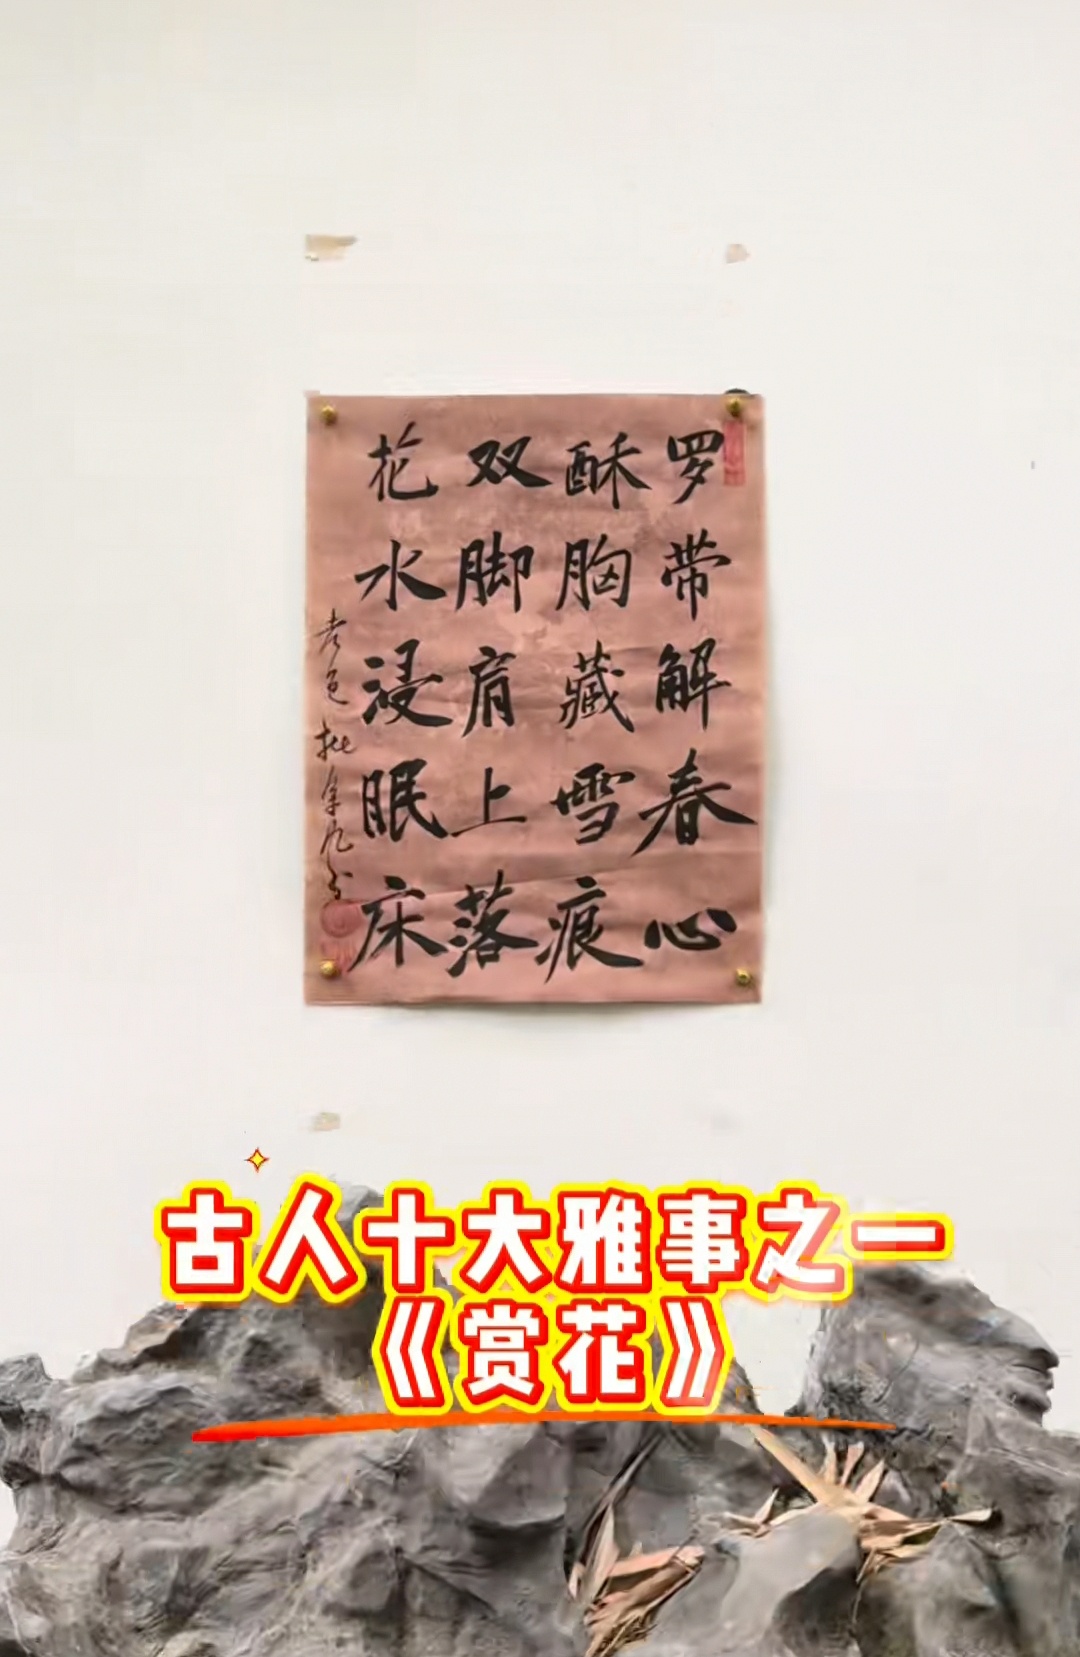 罗带解春心
酥胸藏雪痕
双脚肩上落
花水浸眠床
古人十大雅事之一
《赏花》